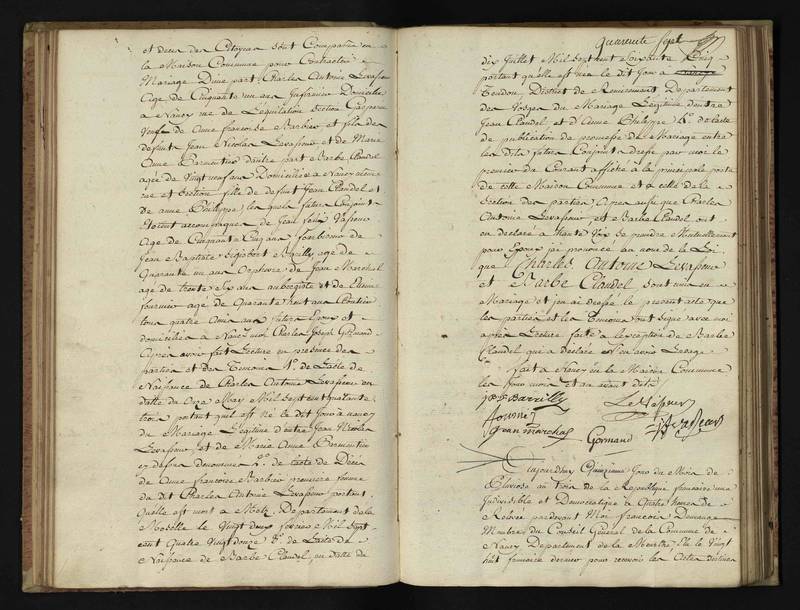 et deux des Citoyens sont Comparus en
la Maison Commune pour Contracter
Mariage D'une part Charles Antoine Levasseur
Agé de Cinquante un ans Domicilié
a Nancy rue de l'Equitation Section
Veuf de Anne françoise Barbier et fils des
defunts Jean Nicolas Levasseur et de Marie
Anne Parmentier d'autre part Barbe Claudel
agée de Vingt neuf ans Domiciliée a Nancy même
rue et Section fille de defunt Jean Claudel et
de anne Philippe, les quels futurs Conjoints
Etoient accompagnés de Jean
Agé de Cinquante Cinq ans
Jean Baptiste Barilly agé de
Quarante un ans de Jean Marchal
agé de trente Six ans aubergiste et de
fournier agé de Quarante huit ans
tous quatre Amis aux futurs Epoux et
domiciliés a Nancy moi Charles Joseph Gormand
Après avoir fait Lecture en présence des
parties et des Temoins 1° de L'acte de
Naissance de Charles Antoine Levasseur en
datte du Onze May Mil Sept cent Quarante
trois portant qu'il est Né le dit Jour a nancy
du Mariage Légitime d'entre Jean Nicolas
Levasseur, et de Marie Anne Parmentier
2°. de l'acte de Décès
de Anne francoise Barbier premiere femme
du dit Charles Antoine Levasseur portant
Quelle est mort a Metz, Departement de la
Moselle le Vingt deux fevrier Mil Sept
cent Quatre Vingt douze 3°. de L'acte de
Naissance de Barbe Claudel, en datte du
Quarante Sept
dix Juillet Mil Sept cent Soixante Cinq
portant qu'elle est née le dit Jour a
Tendon District de Remiremont, Departement
des Vosges du Mariage Légitime d'entre
Jean Claudel et d'Anne Philippe 4°. de l'acte
de publication de promesse de Mariage entre
les dits futurs Conjoints dressé par moi le
premier du Courant affiché a la principale porte
de cette Maison Commune et a celle de la
Section des parties Après aussi que Charles
Antoine Levasseur et Barbe Claudel ont
en declaré a Haute Voix se prendre Mutuellement
pour Epoux j'ai prononcé au nom de la Loi
que Charles Antoine Levasseur
et Barbe Claudel sont unis en
Mariage et j'en ai dressé le present acte que
les parties et les Temoins ont signé avec moi
après Lecture faite a l'exception de Barbe
Claudel qui a declaré n'en avoir L'usage
fait a Nancy en la Maison Commune
les Jour mois et an avant dits
Barrilly
fournier
Jean marchal
Gormand
Levasseur
Aujourd'huy Quinzieme Jour du Mois de
Pluviose an trois de la Republique francaise une
Indivisible et Democratique a Quatre heures de
Relevée pardevant Moi francois Demange
Membre du Conseil Général de la Commune de
Nancy Departement de la Meurthe, Elu le Vingt
huit frimaire dernier pour recevoir les Actes destinés